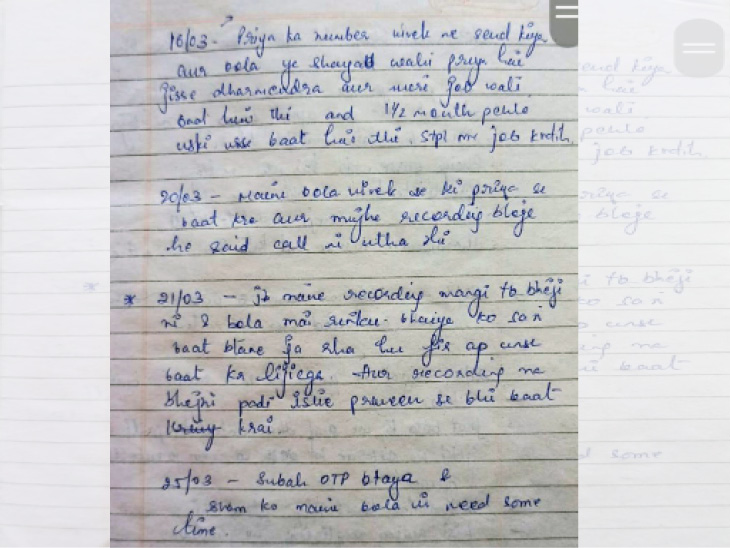 16/03 - Priya ka number vivek ne send kiya
aur bola ye shayad wahi priya hai
jisse dharmendra aur meri job wali
baat hui thi and 1 1/2 month pehle
uski usse baat hui thi. Stpl me job krdith.
20/03 - Maine bola vivek se ki priya se
baat kro aur mujhe recording bheje
he said call ni utha thi
* 21/03 - jb maine recording mangi to bheji
ni & bola mai rinku bhaiya ko sari
baat btane ja rha hu fir ap unse
baat kr lijiega. Aur recording na
bhejni padi islie praveen se bhi baat
krai.
25/03 - Subah OTP btaya &
sham ko maine bola ni need some
time.